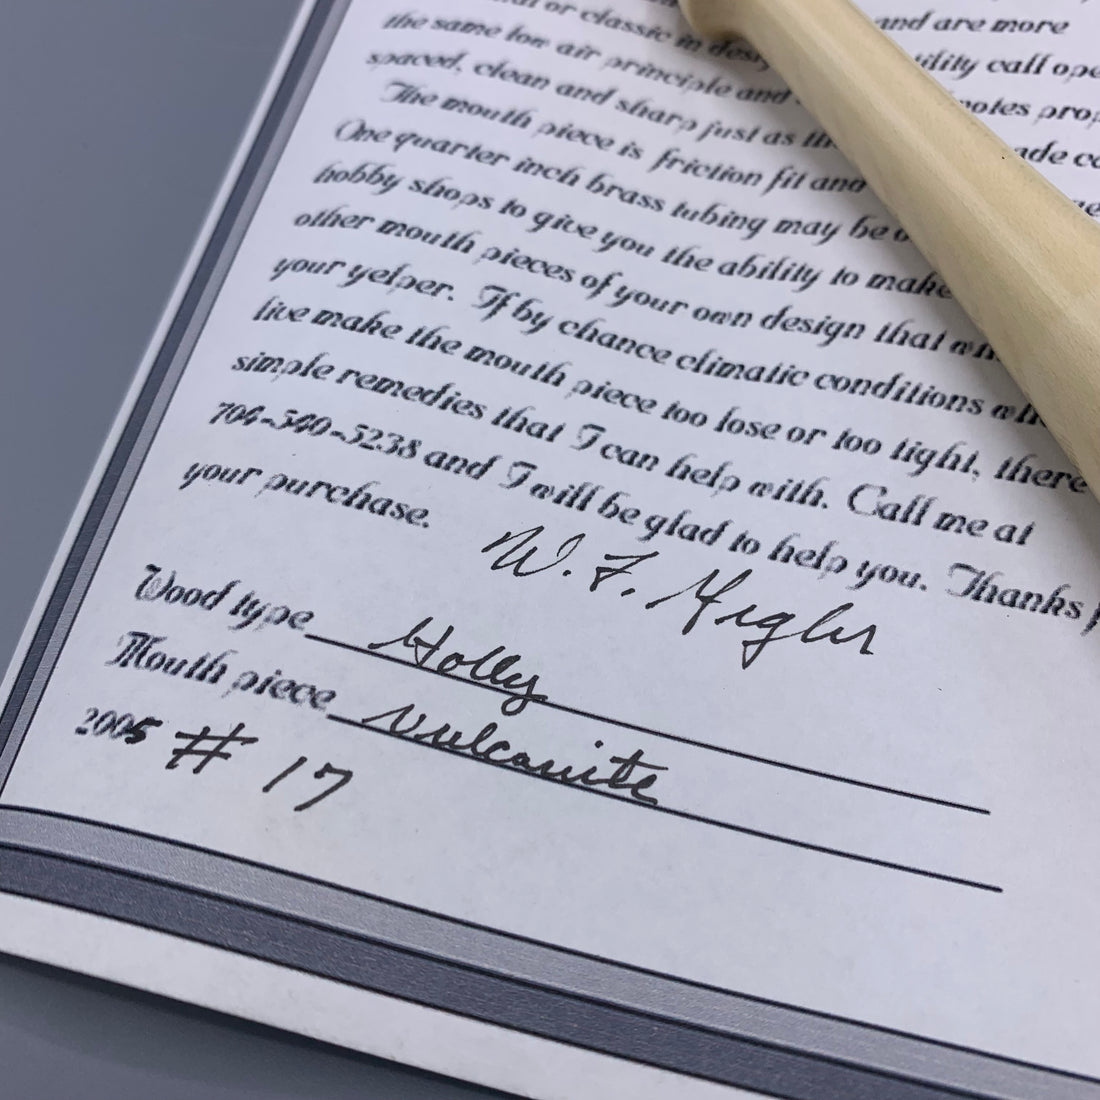 or classic in
and are more
the same low air principle and
utility call
spaced, clean and sharp just as
notes
The mouth piece is friction fit and
One quarter inch brass tubing may be
hobby shops to give you the ability to make
other mouth pieces of your own design that
your yelper. If by chance climatic conditions
live make the mouth piece too lose or too tight, there
simple remedies that I can help with. Call me at
704-540-5238 and I will be glad to help you. Thanks
your purchase.
W. F.
Wood type Holly
Mouth piece Vulcanite
2005 # 17